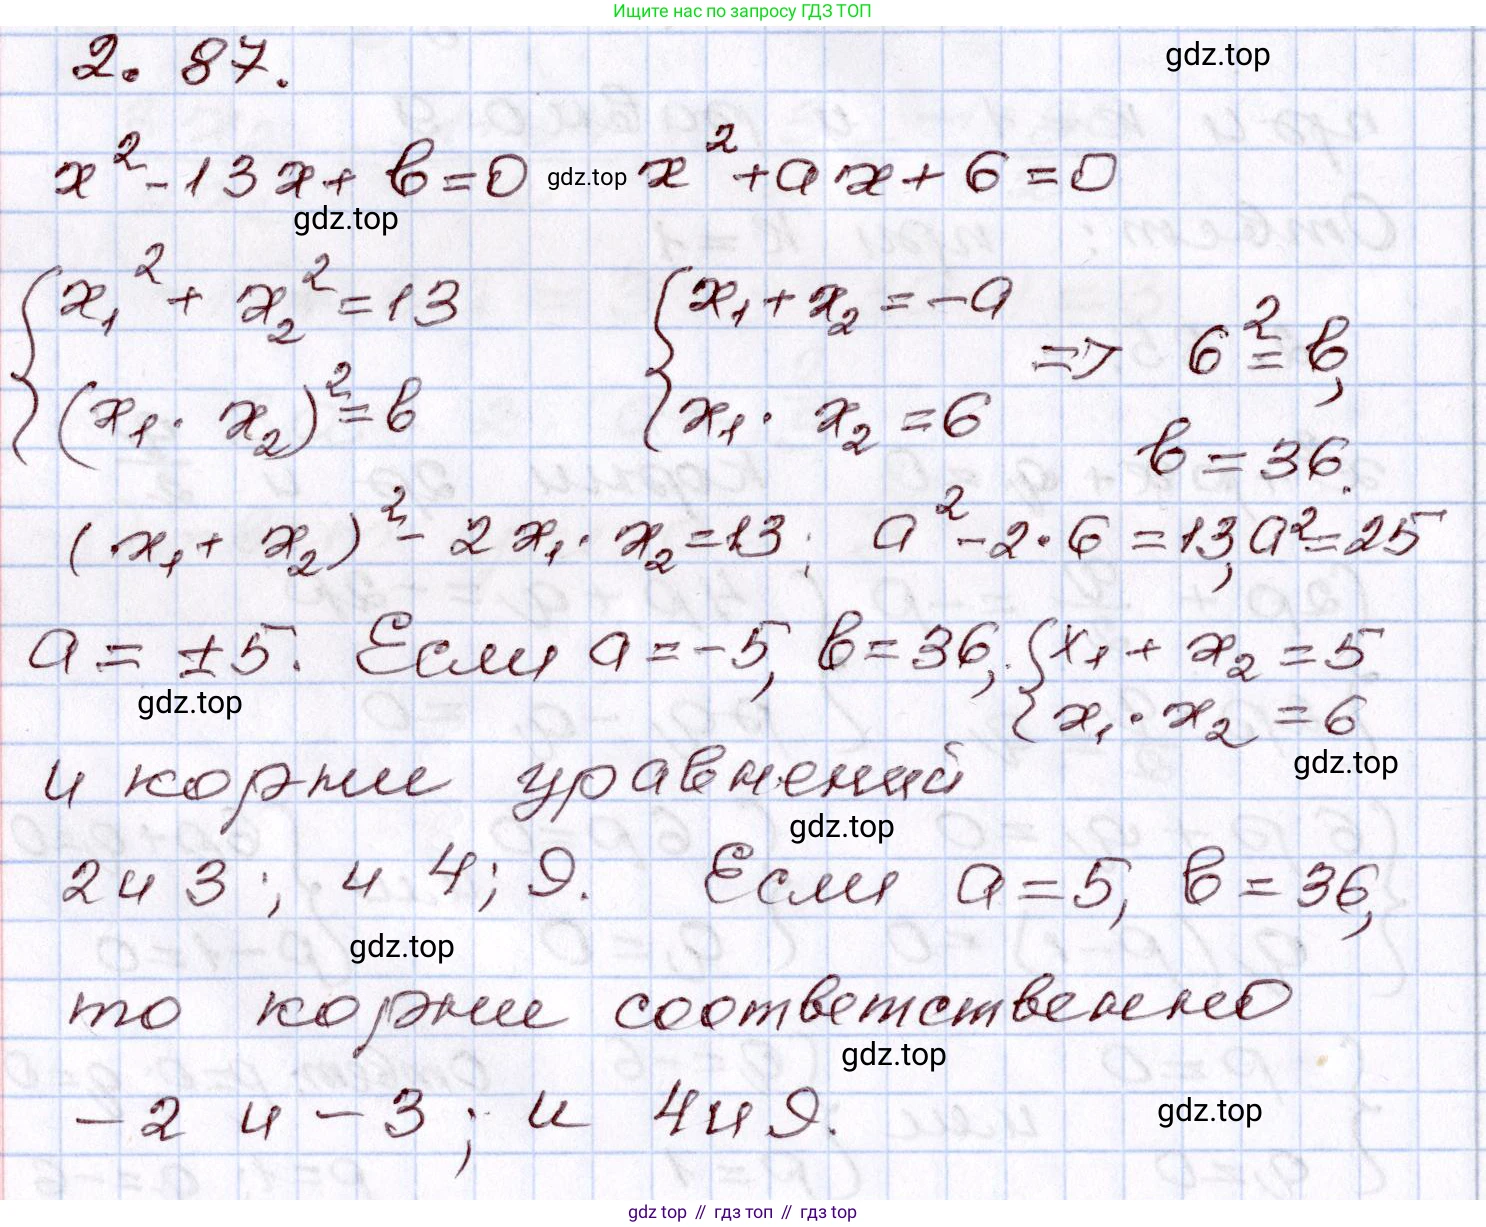 Ищите нас по запросу ГДЗ ТОП
2. 87.
gdz.top
x² - 13x + в = 0 gdz.top x² + ax + 6 = 0
gdz.top
{ x₁² + x₂² = 13 { x₁ + x₂ = -a
=> 6² = в,
(x₁ · x₂)² = в x₁ · x₂ = 6
в = 36.
(x₁ + x₂)² - 2x₁ · x₂ = 13; a² - 2 · 6 = 13, a² = 25
a = ±5. Если a = -5, в = 36, { x₁ + x₂ = 5
gdz.top
x₁ · x₂ = 6
gdz.top
и корни уравнений
gdz.top
2 и 3; и 4; 9. Если a = 5, в = 36,
gdz.top
то корни соответственно
gdz.top
-2 и -3; и 4 и 9.
gdz.top
gdz top // гдз топ // гдз top